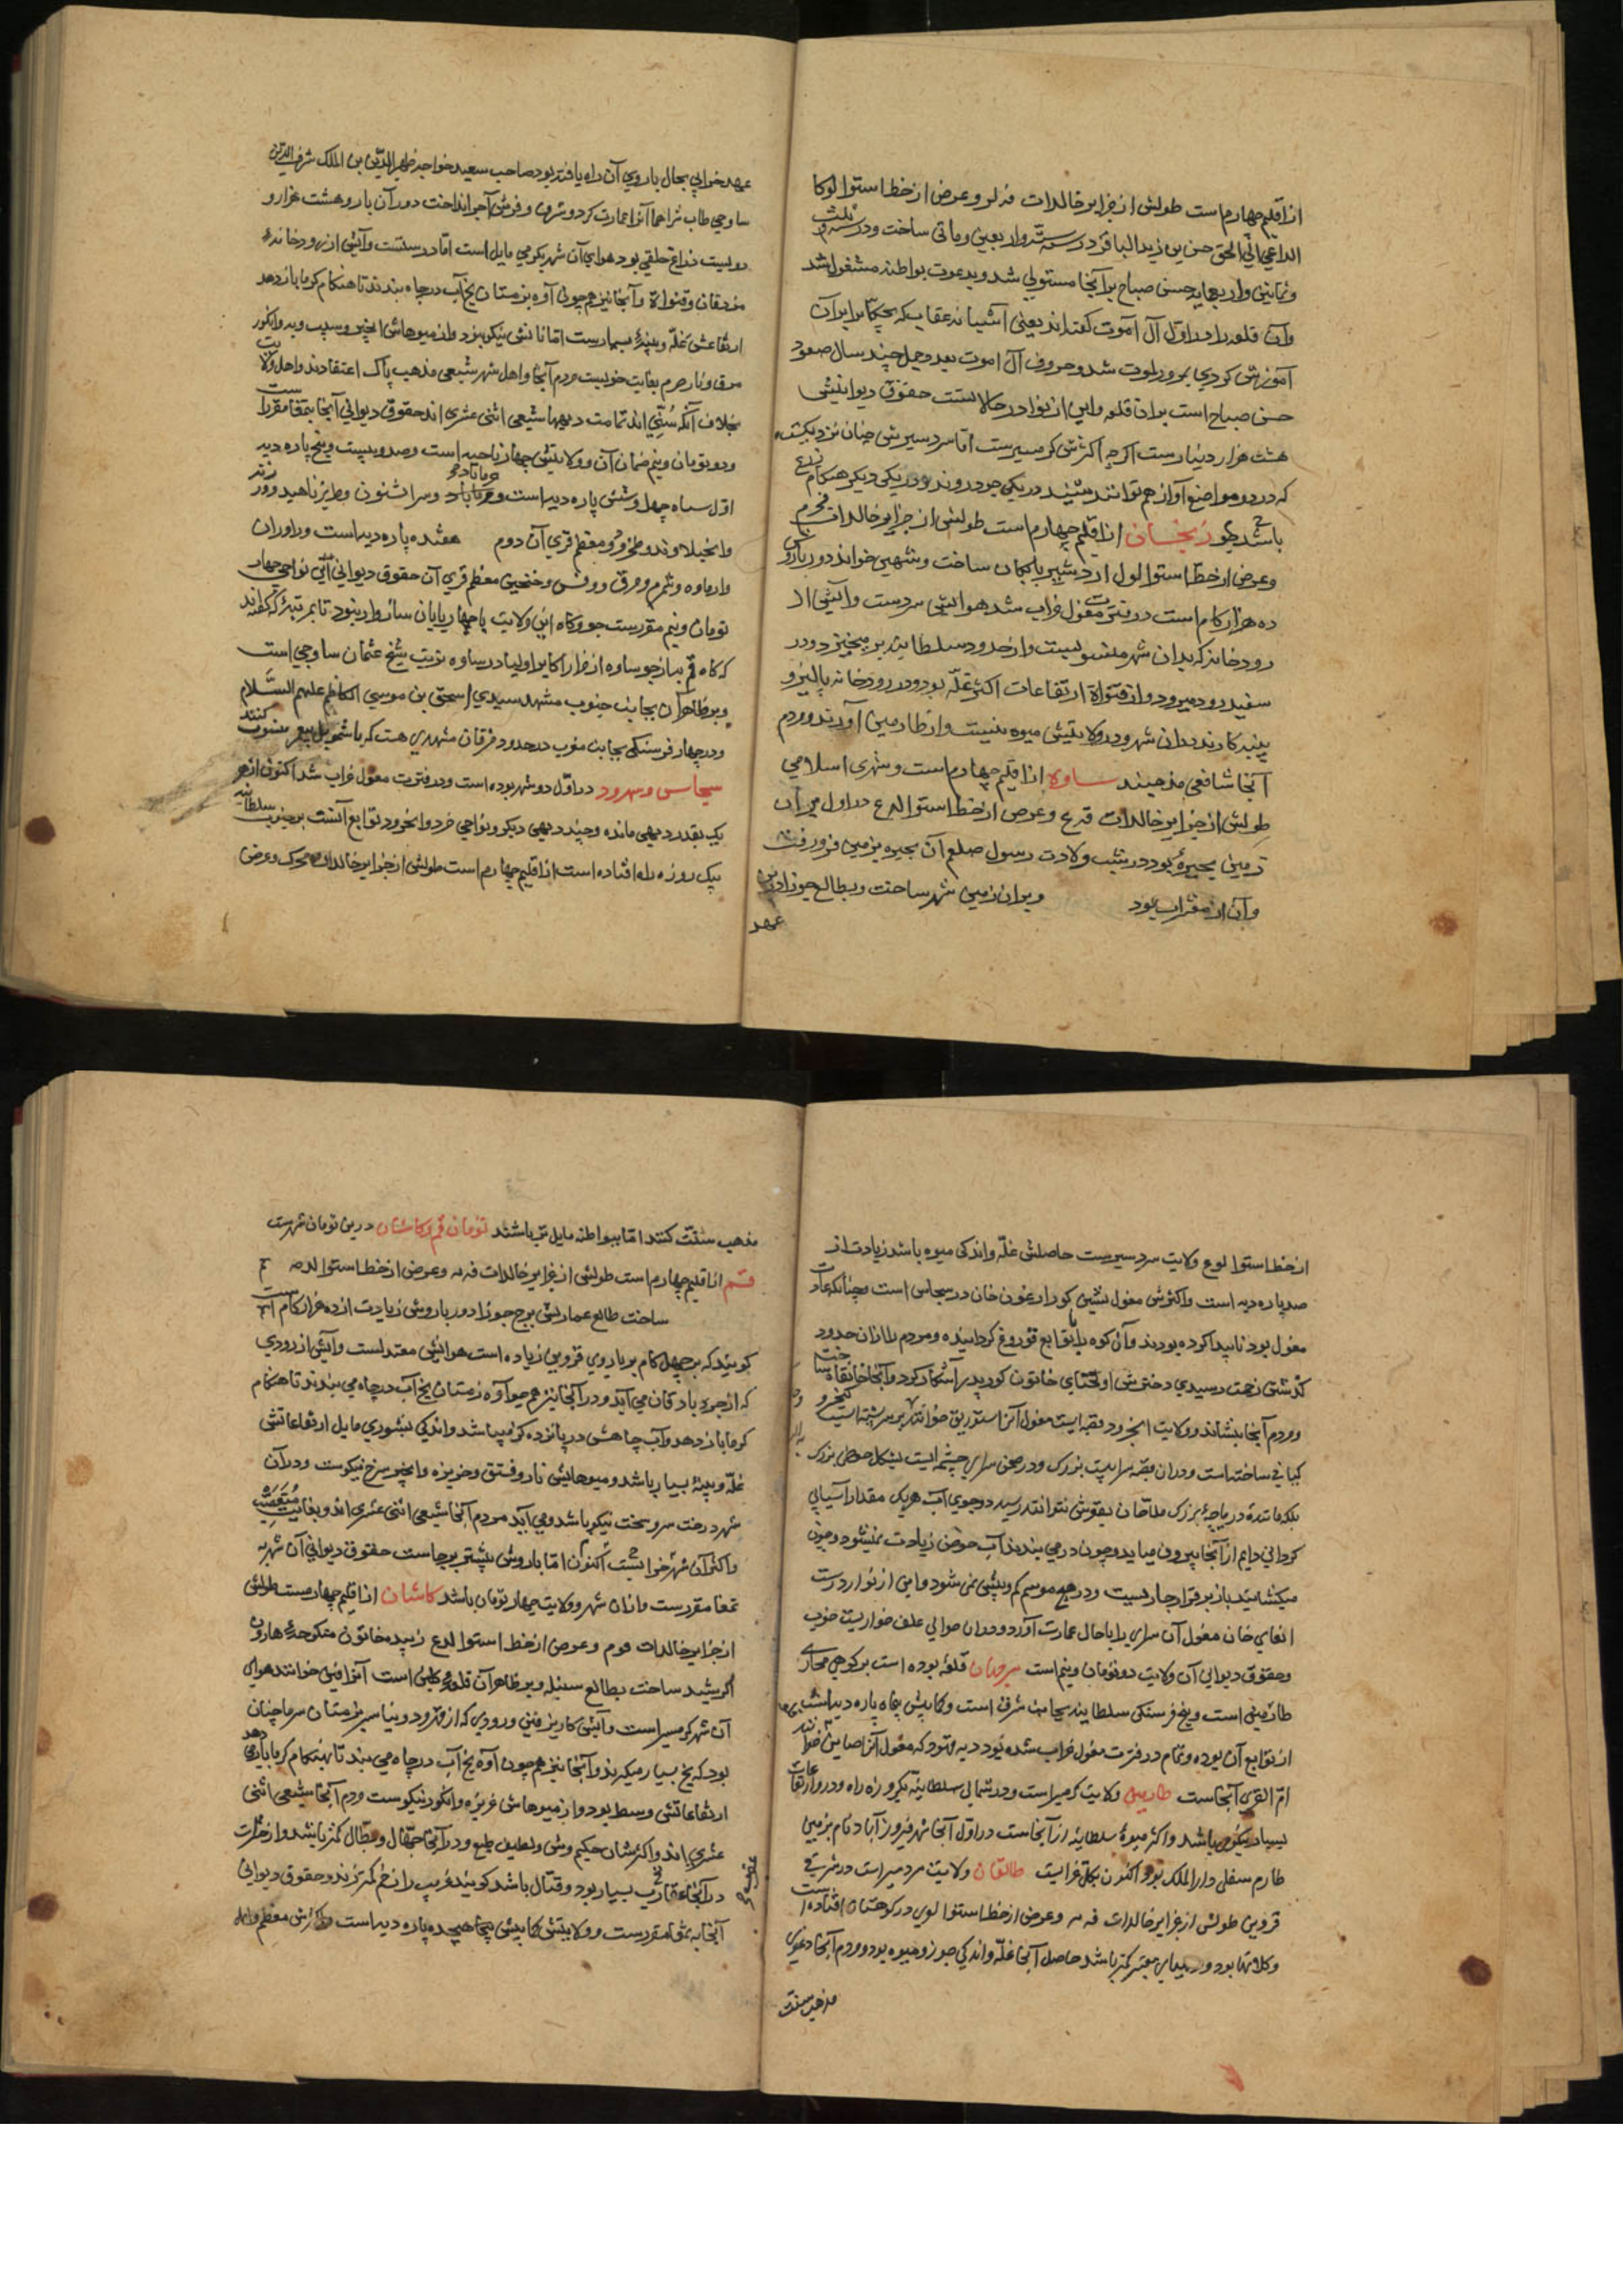 از اقلیم چهارم است طولش از جزایر خالدات فه لو و عرض از خط استوا لوکا
الداعی الی الحق حسن بن زید الباقر در سنه ستة و اربعین و مأتی ساخت و در سنه ثلث
و ثمانین و اربعمایه حسن صباح بر آنجا مستولی شد و بدعوت بواطنه مشغول شد
و آن قلعه را در اول آل آموت گفته‌اند یعنی آشیانه عقاب که بچکانرا بر آن
آموزش کردی بمرور الموت شد و حروف آل اموت بعدد جمل چند سال صعود
حسن صباح است بر آن قلعه و این از نوادر حالاتست حقوق دیوانیش
هشت هزار دینارست اکرچه اکثرش کرمسیرست اما سردسیرش چنان نزدیکست
که در دو مواضع آواز هم توانند شنید در یکی جو دروند و در یکی دیکر هنکام زرع
باشد جو زنجان از اقلیم چهارم است طولش از جزایر خالدات فجم
و عرض از خط استوا لول اردشیر بابکان ساخت و شهین خواند دور باروش
ده هزار کام است در فترت مغول خراب شد هوایش سردست و آبش از
رودخانه که بدان شهر منسوبست و از حدود سلطانیه بر میخیزد و در
سفیدرود میرود و از قنواة ارتفاعات اکثر غله بود و در رودخانه پالیز و
پنبه کارند بدان شهر و در ولایتش میوه نیست و از طارمین آورند و مردم
آنجا شافعی مذهبند ساوه از اقلیم چهارم است و شهری اسلامی
طولش از جزایر خالدات فه ع و عرض از خط استوا له ع در اول در آن
زمین بحیرهٔ بود در شب ولادت رسول صلعم آن بحیره بزمین فرو رفت
و آن از مبشرات بود و بر آن زمین شهر ساختند و بطالع جوزا درین
عهد
عهد خرابی بحال باروی آن راه یافته بود صاحب سعید خواجه ظهیر الدین بن الملک شرف الدین
ساوجی طاب ثراهما آنرا عمارت کرد و شرف و فرش آجر انداخت دور آن بارو هشت هزار و
دویست ذراع حلقی بود هوای آن شهر بکرمی مایل است اما درستست و آبش از رودخانهٔ
مزدقان و قنواة و آنجا نیز همچون آوه بزمستان یخ آب در چاه بندند تا هنکام کرما بازدهد
ارتفاعش غله و پنبه بسیارست اما نانش نیکو بود و از میوهاش انجیر و سیب و به و انکور
مرق و نار خرم بغایت خوبست مردم آنجا و اهل شهر شیعی مذهب پاک اعتقادند و اهل ولایت
بخلاف آنکه سنی‌اند تمامت دیهها شیعی اثنی عشری‌اند حقوق دیوانی آنجا بتمغا مقررست
و دو تومان و نیم ضمان آن و ولایتش چهار ناحیه است و صد و بیست و پنج پاره دیه
اول ساوه چهل و شش پاره دیه است و ... و سراشنون و طریز ناهید و ورزنه
و انجیلاوند و طخرود معظم قرای آن دوم هفده پاره دیه است و راوران
... معظم قرای آن حقوق دیوانی این نواحی چهار
تومان و نیم مقررست جو و کاه این ولایت با چهار پایان سازوار بود تا بمرتبه‌ای که گفته‌اند
که کاه قم به از جو ساوه از مزار اکابر اولیا در ساوه تربت شیخ عثمان ساوجی است
و بر ظاهر آن بجانب جنوب مشهد سیدی اسحق بن موسی الکاظم علیهم السلام
و در چهار فرسنکی بجانب مغرب در حدود خرقان مشهدی هست که باشموئیل پیغمبر منسوب کنند
سجاس و سهرورد در اول دو شهر بوده است و در فترت مغول خراب شد اکنون از هر
یک بقدر دیهی مانده و چند دیهی دیکر و نواحی خرد و انجرود توابع آنست بر جنوب سلطانیه
یک روزه راه افتاده است از اقلیم چهارم است طولش از جزایر خالدات محک و عرض
از خط استوا لوع ولایت سردسیرست حاصلش غله و اندکی میوه باشد زیادت از
صد پاره دیه است و اکثرش مغول نشین کور ارغون خان در سجاس است و چنانکه عادت
مغول بود ناپیدا کرده بودند و آن کوه را بتوابع قوروغ کردانیده و مردم را از آن حدود
کذشتن زحمت رسیدی دخترش اولجتای خاتون کور پدر آشکار کرد و آنجا خانقاه ساخت
و مردم آنجا بنشاند و ولایت انجرود قصبه ایست مغول آنرا ستوریق خوانند بر سر پشته است کیخسرو
کیانی ساخته است و در آن قصبه سرایست بزرک و در صحن سرای چشمه ایست بشکل حوضی بزرک
بلکه مانند دریاچهٔ بزرک ملاحان بقعرش نتوانند رسید دو جوی آب هر یک مقدار آسیایی
کردانی دایم از آنجا بیرون میاید و چون در می بندند آب حوض زیادت نمیشود و چون
میکشایند باز بر قرار جاریست و در هیچ موسم کم و بیش نمی شود و این از نوادرست
ابقای خان مغول آن سرای را با حال عمارت آورد و در آن حوالی علف خواریست خوب
و حقوق دیوانی آن ولایت دو تومان و نیم است سرجهان قلعهٔ بوده است بر کوهی محاذی
طارمین است و پنج فرسنکی سلطانیه بجانب شرق است و کمابیش پنجاه پاره دیه است
از توابع آن بوده و تمام در فترت مغول خراب شده بود دیه قهود که مغول آنرا صاین خوانند
ام القری آنجاست طارمین ولایت کرمسیراست و در شمالی سلطانیه بیکروزه راه و در و ارتفاعات
بسیار نیکو باشد و اکثر میوهٔ سلطانیه از آنجاست در اول آنجا شهر فیروزآباد نام بزمین
طارم سفلی دارالملک بود و اکنون بکلی خرابست طالقان ولایت سردسیراست در شرقی
قزوین طولش از جزایر خالدات فه مه و عرض از خط استوا لوی در کوهستان افتاده است
و کلاتها بود و دیههای معتبر کمتر باشد حاصل آنجا غله و اندکی جوز و میوه بود و مردم آنجا دعوی
مذهب سنت
مذهب سنت کنند اما ببواطنه مایل تر باشند تومان قم و کاشان درین تومان شهرست
قم از اقلیم چهارم است طولش از جزایر خالدات فه مه و عرض از خط استوا لدمه
ساخت طالع عمارتش برج جوزا دور باروش زیادت از ده هزار کام است
کویند که بر چهل کام بر باروی قزوین زیاده است هوایش معتدلست و آبش از رودی
که از جربادقان می آید و در آنجا نیز همچو آوه زمستان یخ آب در چاه می بندند تا هنکام
کرما بازدهد و آب چاهش در پانزده کز بیش باشد و اندکی بشوری مایل ارتفاعاتش
غله و پنبه بسیار باشد و میوهایش نار و فستق و خربزه و انجیر سرخ نیکوست و در آن
شهر درخت سرو سخت نیکو باشد و می آید مردم آنجا شیعی اثنی عشری‌اند و بغایت متعصب
و اکثر آن شهر خرابست اکنون اما باروش بیشتر برجاست حقوق دیوانی آن شهر به
تمغا مقررست و از آن شهر و ولایت چهار تومان باشد کاشان از اقلیم چهارمست طولش
از جزایر خالدات فوم و عرض از خط استوا لدع زبیده خاتون منکوحهٔ هارون
الرشید ساخت بطالع سنبله و بر ظاهر آن قلعهٔ کلین است آنرا فین خوانند هوای
آن شهر کرمسیراست و آبش کاریز فین و رودی که از قهرود و نیاسر بزمستان سرما چنان
بود که یخ بسیار میکیرند و آنجا نیز همچون آوه یخ آب در چاه می بندند تا بهنکام کرما بازمی دهد
ارتفاعاتش وسط بود و از میوهاش خربزه و انکور نیکوست و مردم آنجا شیعی اثنی
عشری‌اند و اکثرشان حکیم وش و لطیف طبع و در آنجا جهال و بطال کمتر باشند و از حشرات
در آنجا عقارب بسیار بود و قتال باشد کویند غریب را زخم کمتر زند و حقوق دیوانی
آنجا به تمغا مقررست و ولایتش کمابیش پنجاه هیجده پاره دیه است و اکثرش معظم و اهل